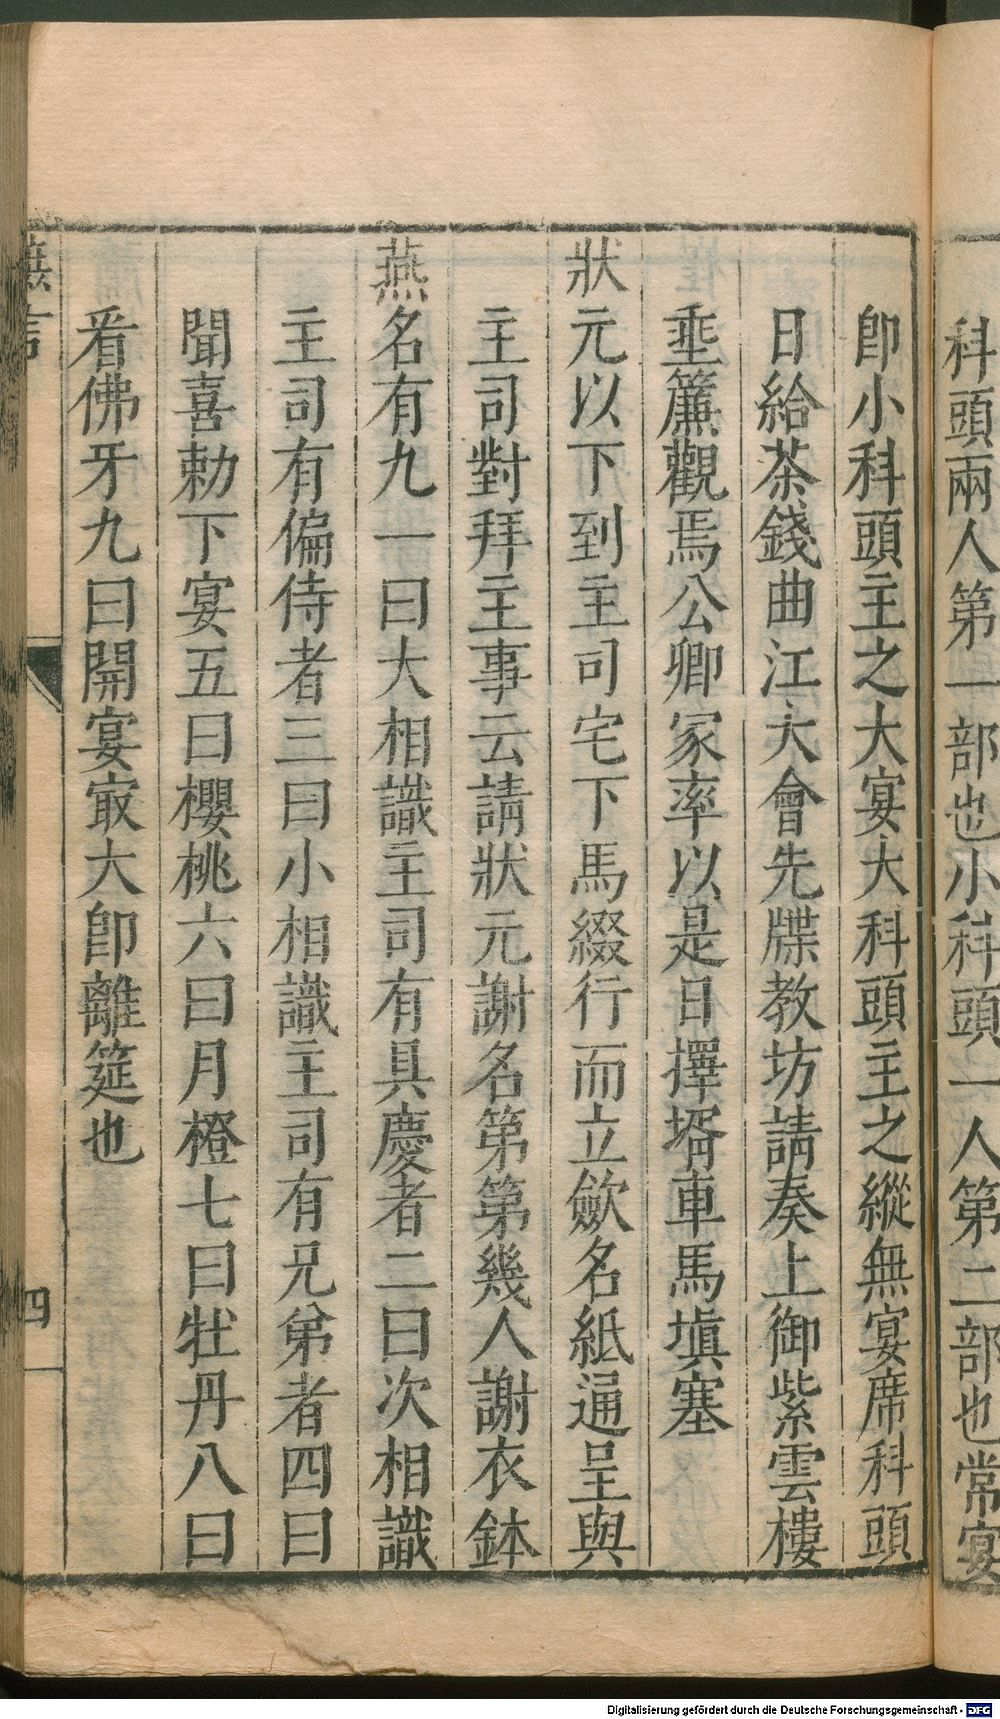 科頭兩人第一部也小科頭一人第二部也常宴
卽小科頭主之大宴大科頭主之縱無宴席科頭
日給茶錢曲江大會先牒教坊請奏上御紫雲樓
垂簾觀焉公卿家率以是日擇壻車馬塡塞
狀元以下到主司宅下馬綴行而立歛名紙通呈與
主司對拜主事云請狀元謝名第第幾人謝衣鉢
燕名有九一曰大相識主司有具慶者二曰次相識
主司有偏侍者三曰小相識主司有兄弟者四曰
聞喜勅下宴五曰櫻桃六曰月橙七曰牡丹八曰
看佛牙九曰開宴㝡大卽離筵也
四
Digitalisierung gefördert durch die Deutsche Forschungsgemeinschaft - DFG